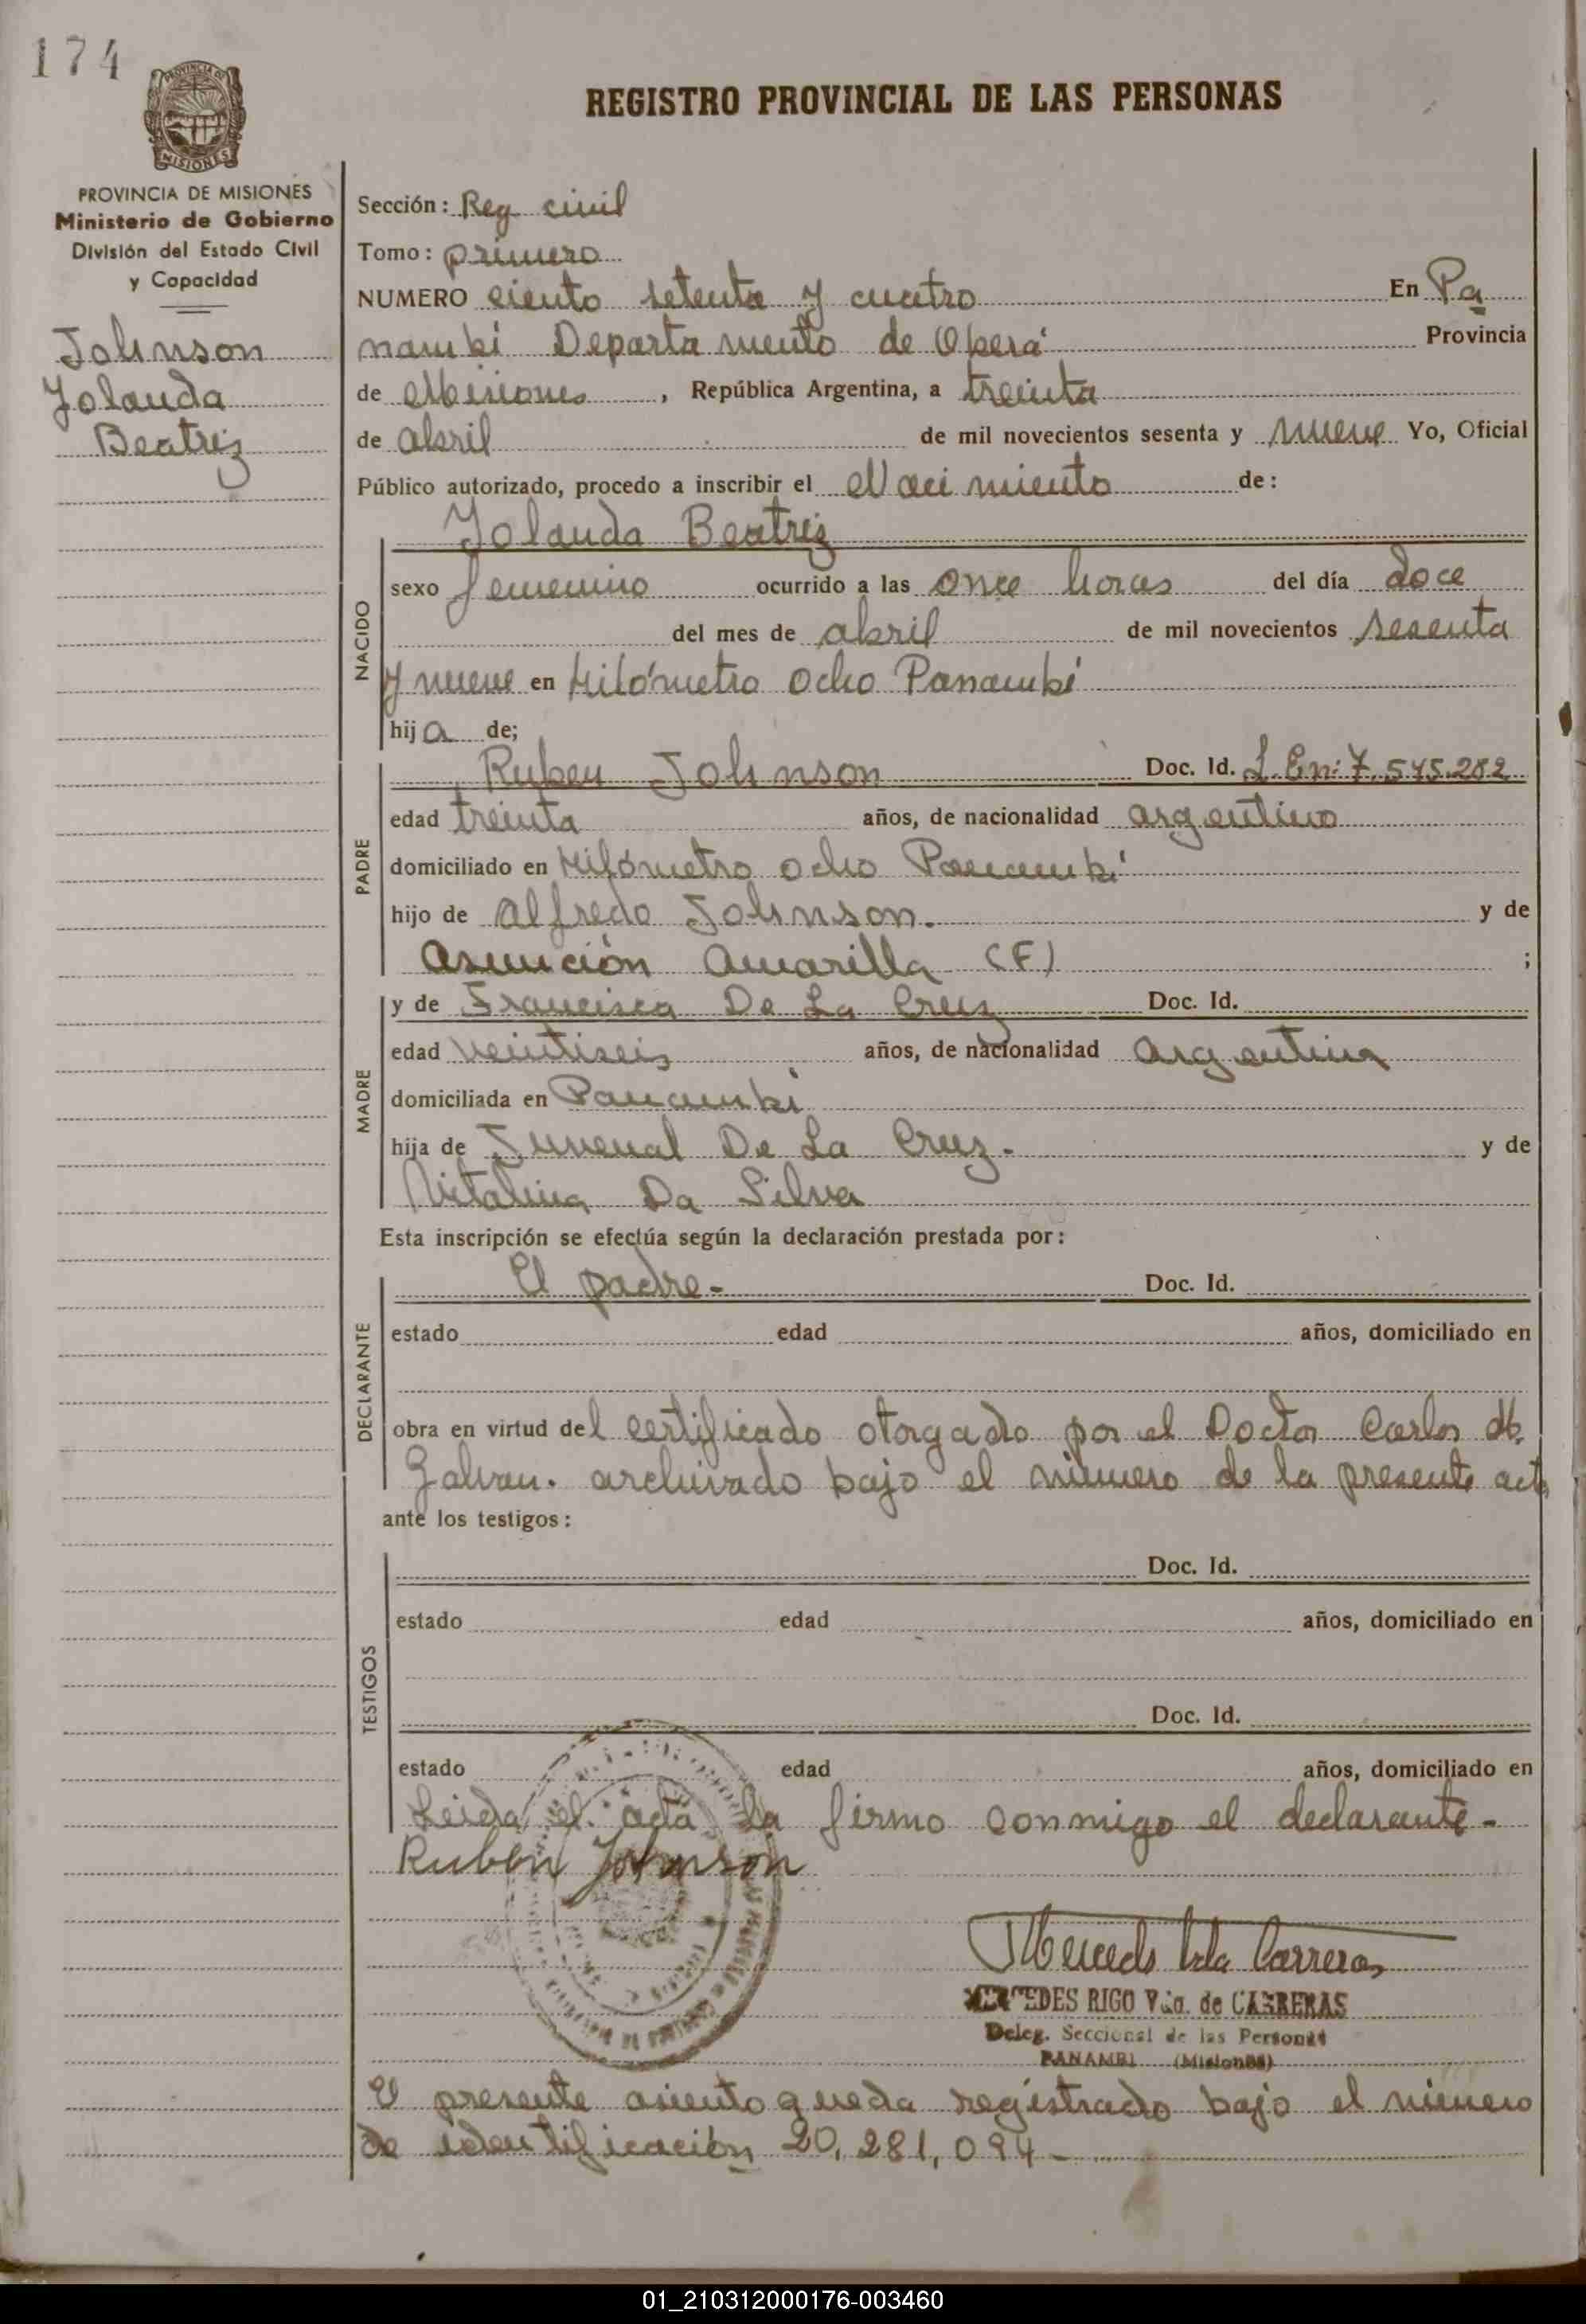 174
PROVINCIA DE MISIONES
REGISTRO PROVINCIAL DE LAS PERSONAS
PROVINCIA DE MISIONES
Ministerio de Gobierno
División del Estado Civil
y Capacidad
Johnson
Yolanda
Beatriz
Sección: Reg civil
Tomo: primero
NUMERO ciento setenta y cuatro En Pa
nambí Departamento de Oberá Provincia
de Misiones, República Argentina, a treinta
de abril de mil novecientos sesenta y nueve Yo, Oficial
Público autorizado, procedo a inscribir el Nacimiento de:
NACIDO
Yolanda Beatriz
sexo femenino ocurrido a las once horas del día doce
del mes de abril de mil novecientos sesenta
y nueve en Kilómetro ocho Panambí
hija de;
PADRE
Ruben Johnson Doc. Id. L.En: 7.545.282
edad treinta años, de nacionalidad argentino
domiciliado en Kilómetro ocho Panambí
hijo de Alfredo Johnson. y de
Asunción Amarilla (F) ;
MADRE
y de Francisca De La Cruz Doc. Id.
edad veintiseis años, de nacionalidad argentina
domiciliada en Panambí
hija de Juvenal De La Cruz. y de
Vitalina Da Silva
Esta inscripción se efectúa según la declaración prestada por:
DECLARANTE
El padre- Doc. Id.
estado edad años, domiciliado en
obra en virtud del certificado otorgado por el Doctor Carlos M.
Galvan. archivado bajo el número de la presente acta
ante los testigos:
TESTIGOS
Doc. Id.
estado edad años, domiciliado en
Doc. Id.
estado edad años, domiciliado en
Leida el acta la firmo conmigo el declarante-
Rubén Johnson
Mercedes Vda Carreras
MERCEDES RIGO Vda. de CARRERAS
Deleg. Seccional de las Personas
PANAMBI (Misiones)
El presente asiento queda registrado bajo el número
de identificación 20,281,094-
01_210312000176-003460